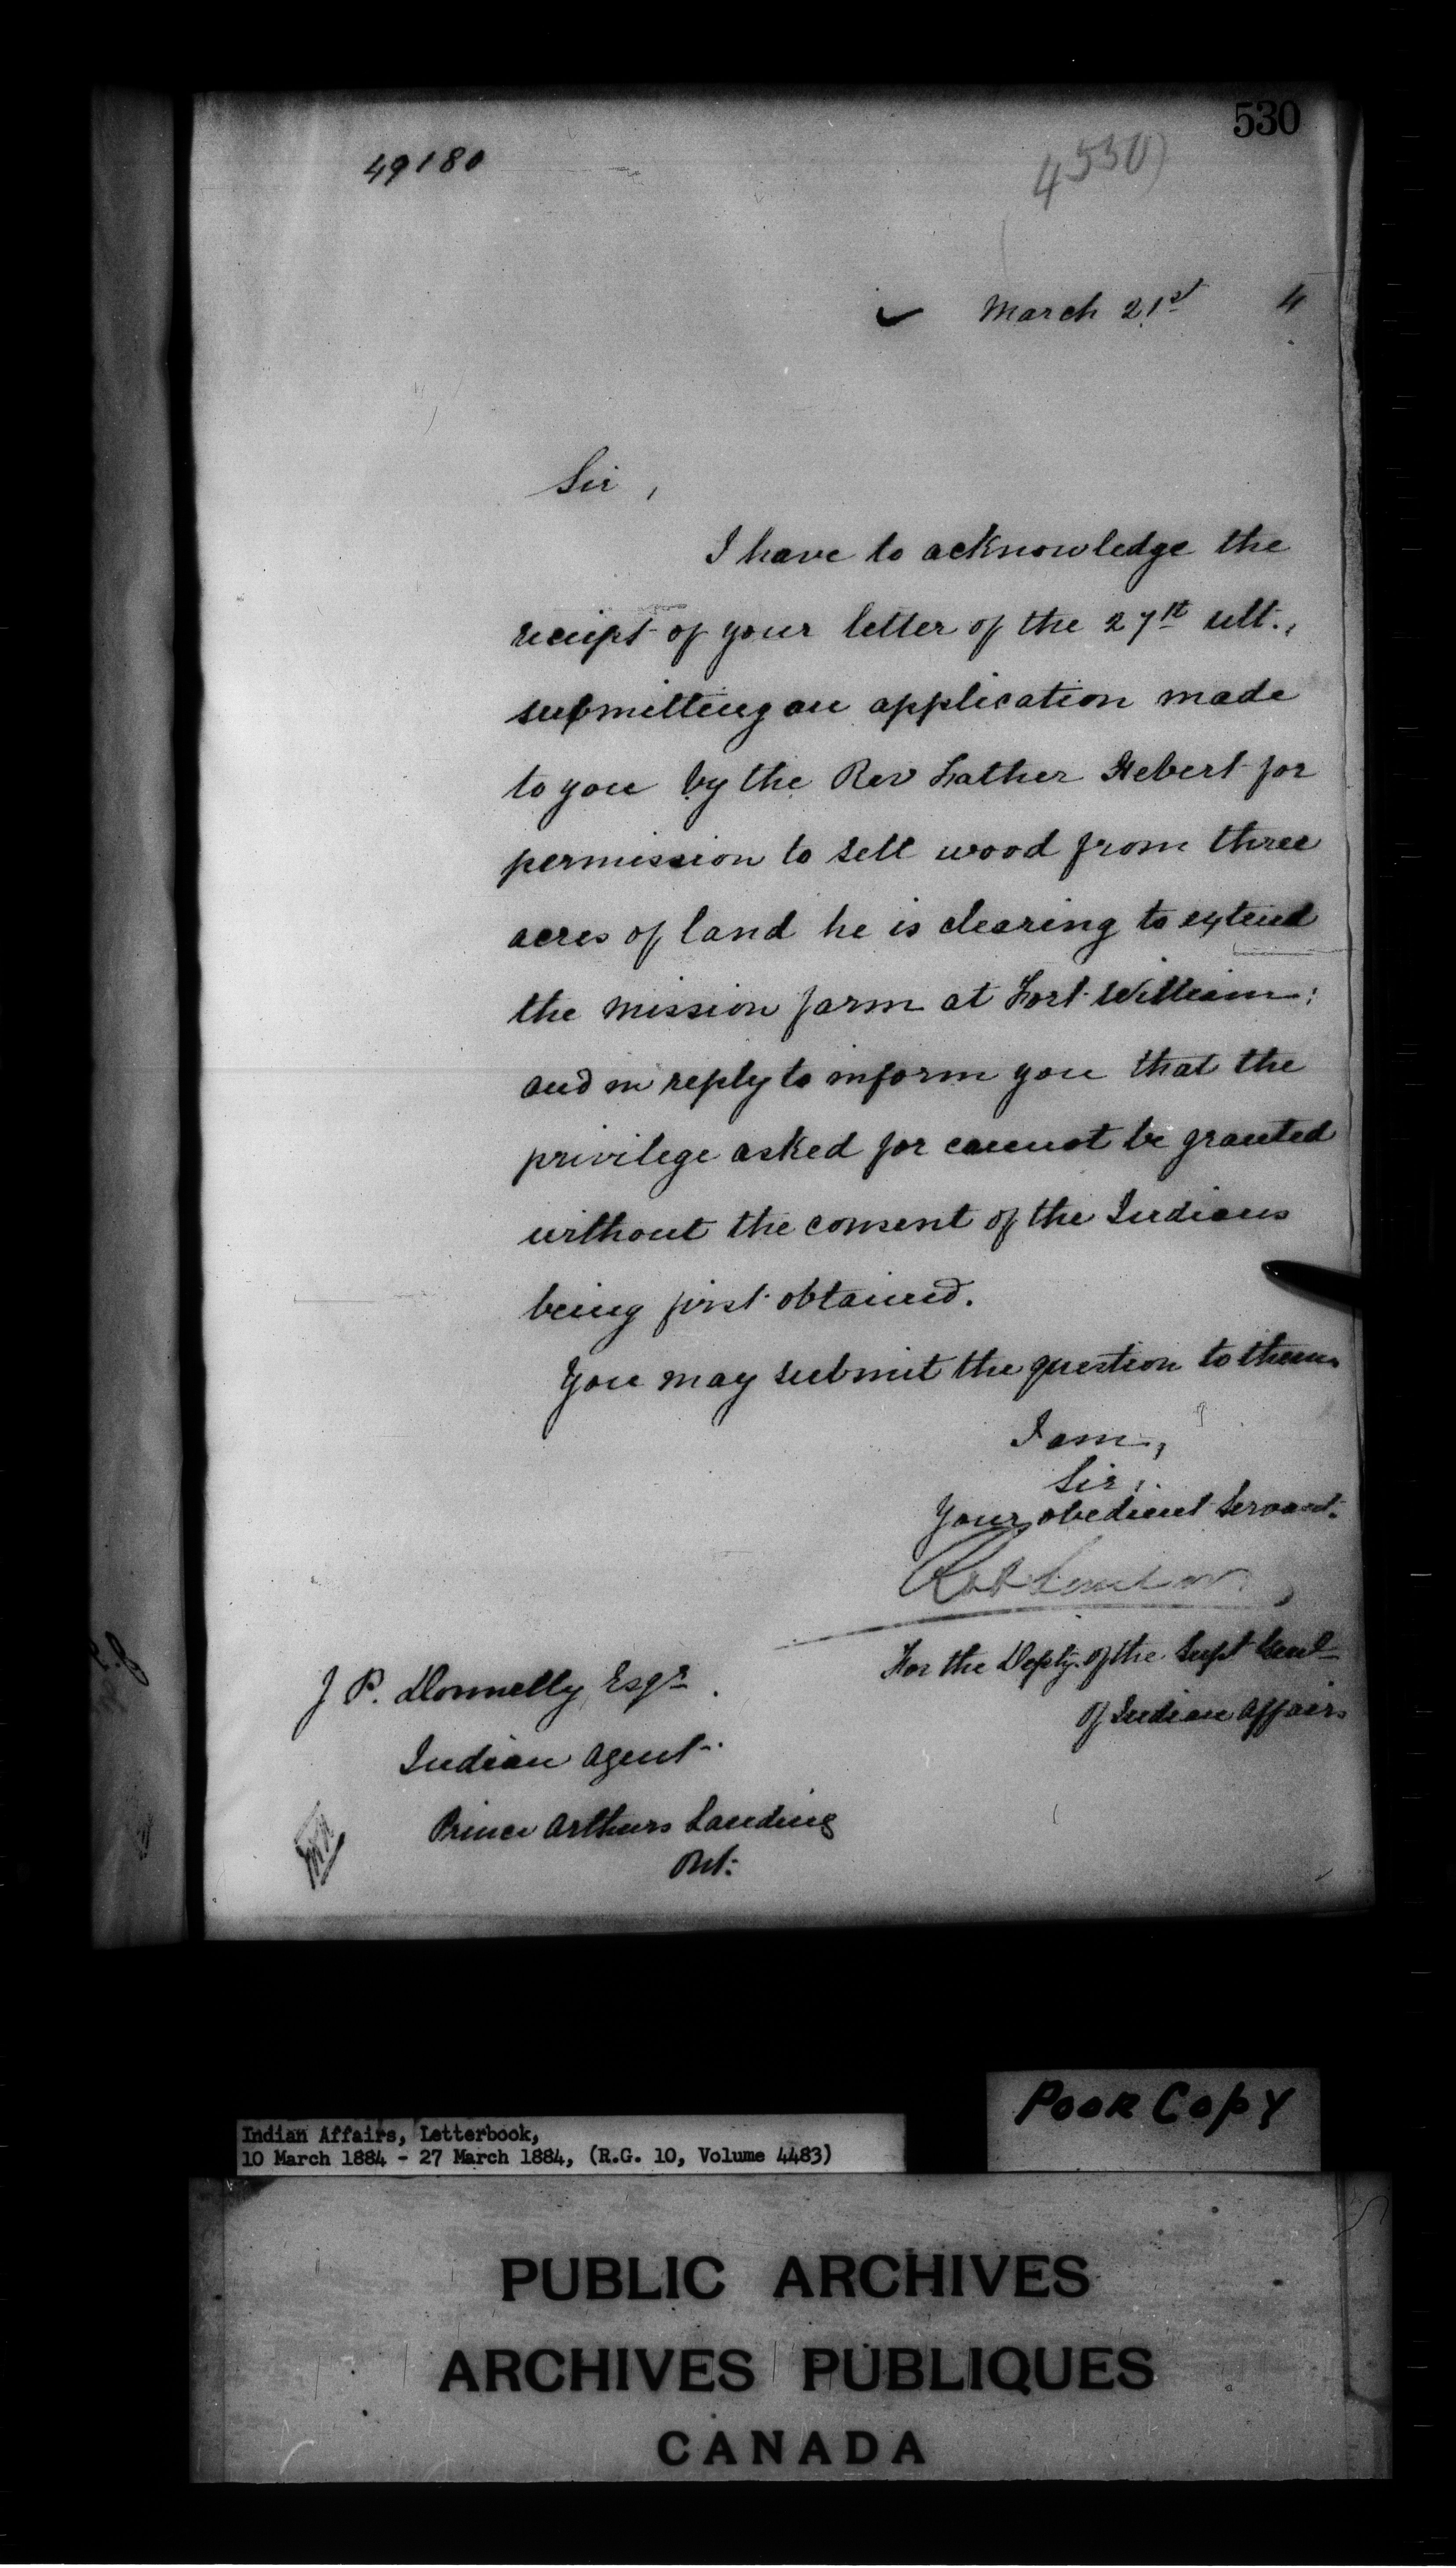 530
49180
4530)
March 21st 4
Sir,
I have to acknowledge the
receipt of your letter of the 27th ult.,
submitting an application made
to you by the Rev Father Hebert for
permission to sell wood from three
acres of land he is clearing to extend
the mission farm at Fort William:
and in reply to inform you that the
privilege asked for cannot be granted
without the consent of the Indians
being first obtained.
You may submit the question to them.
I am,
Sir,
Your obedient Servant.
For the Depty. of the Supt Genl
of Indian Affairs
J P. Donnelly, Esqr.
Indian Agent.
Prince Arthurs Landing
Ont:
Poor Copy
Indian Affairs, Letterbook,
10 March 1884 - 27 March 1884, (R.G. 10, Volume 4483)
PUBLIC ARCHIVES
ARCHIVES PUBLIQUES
CANADA